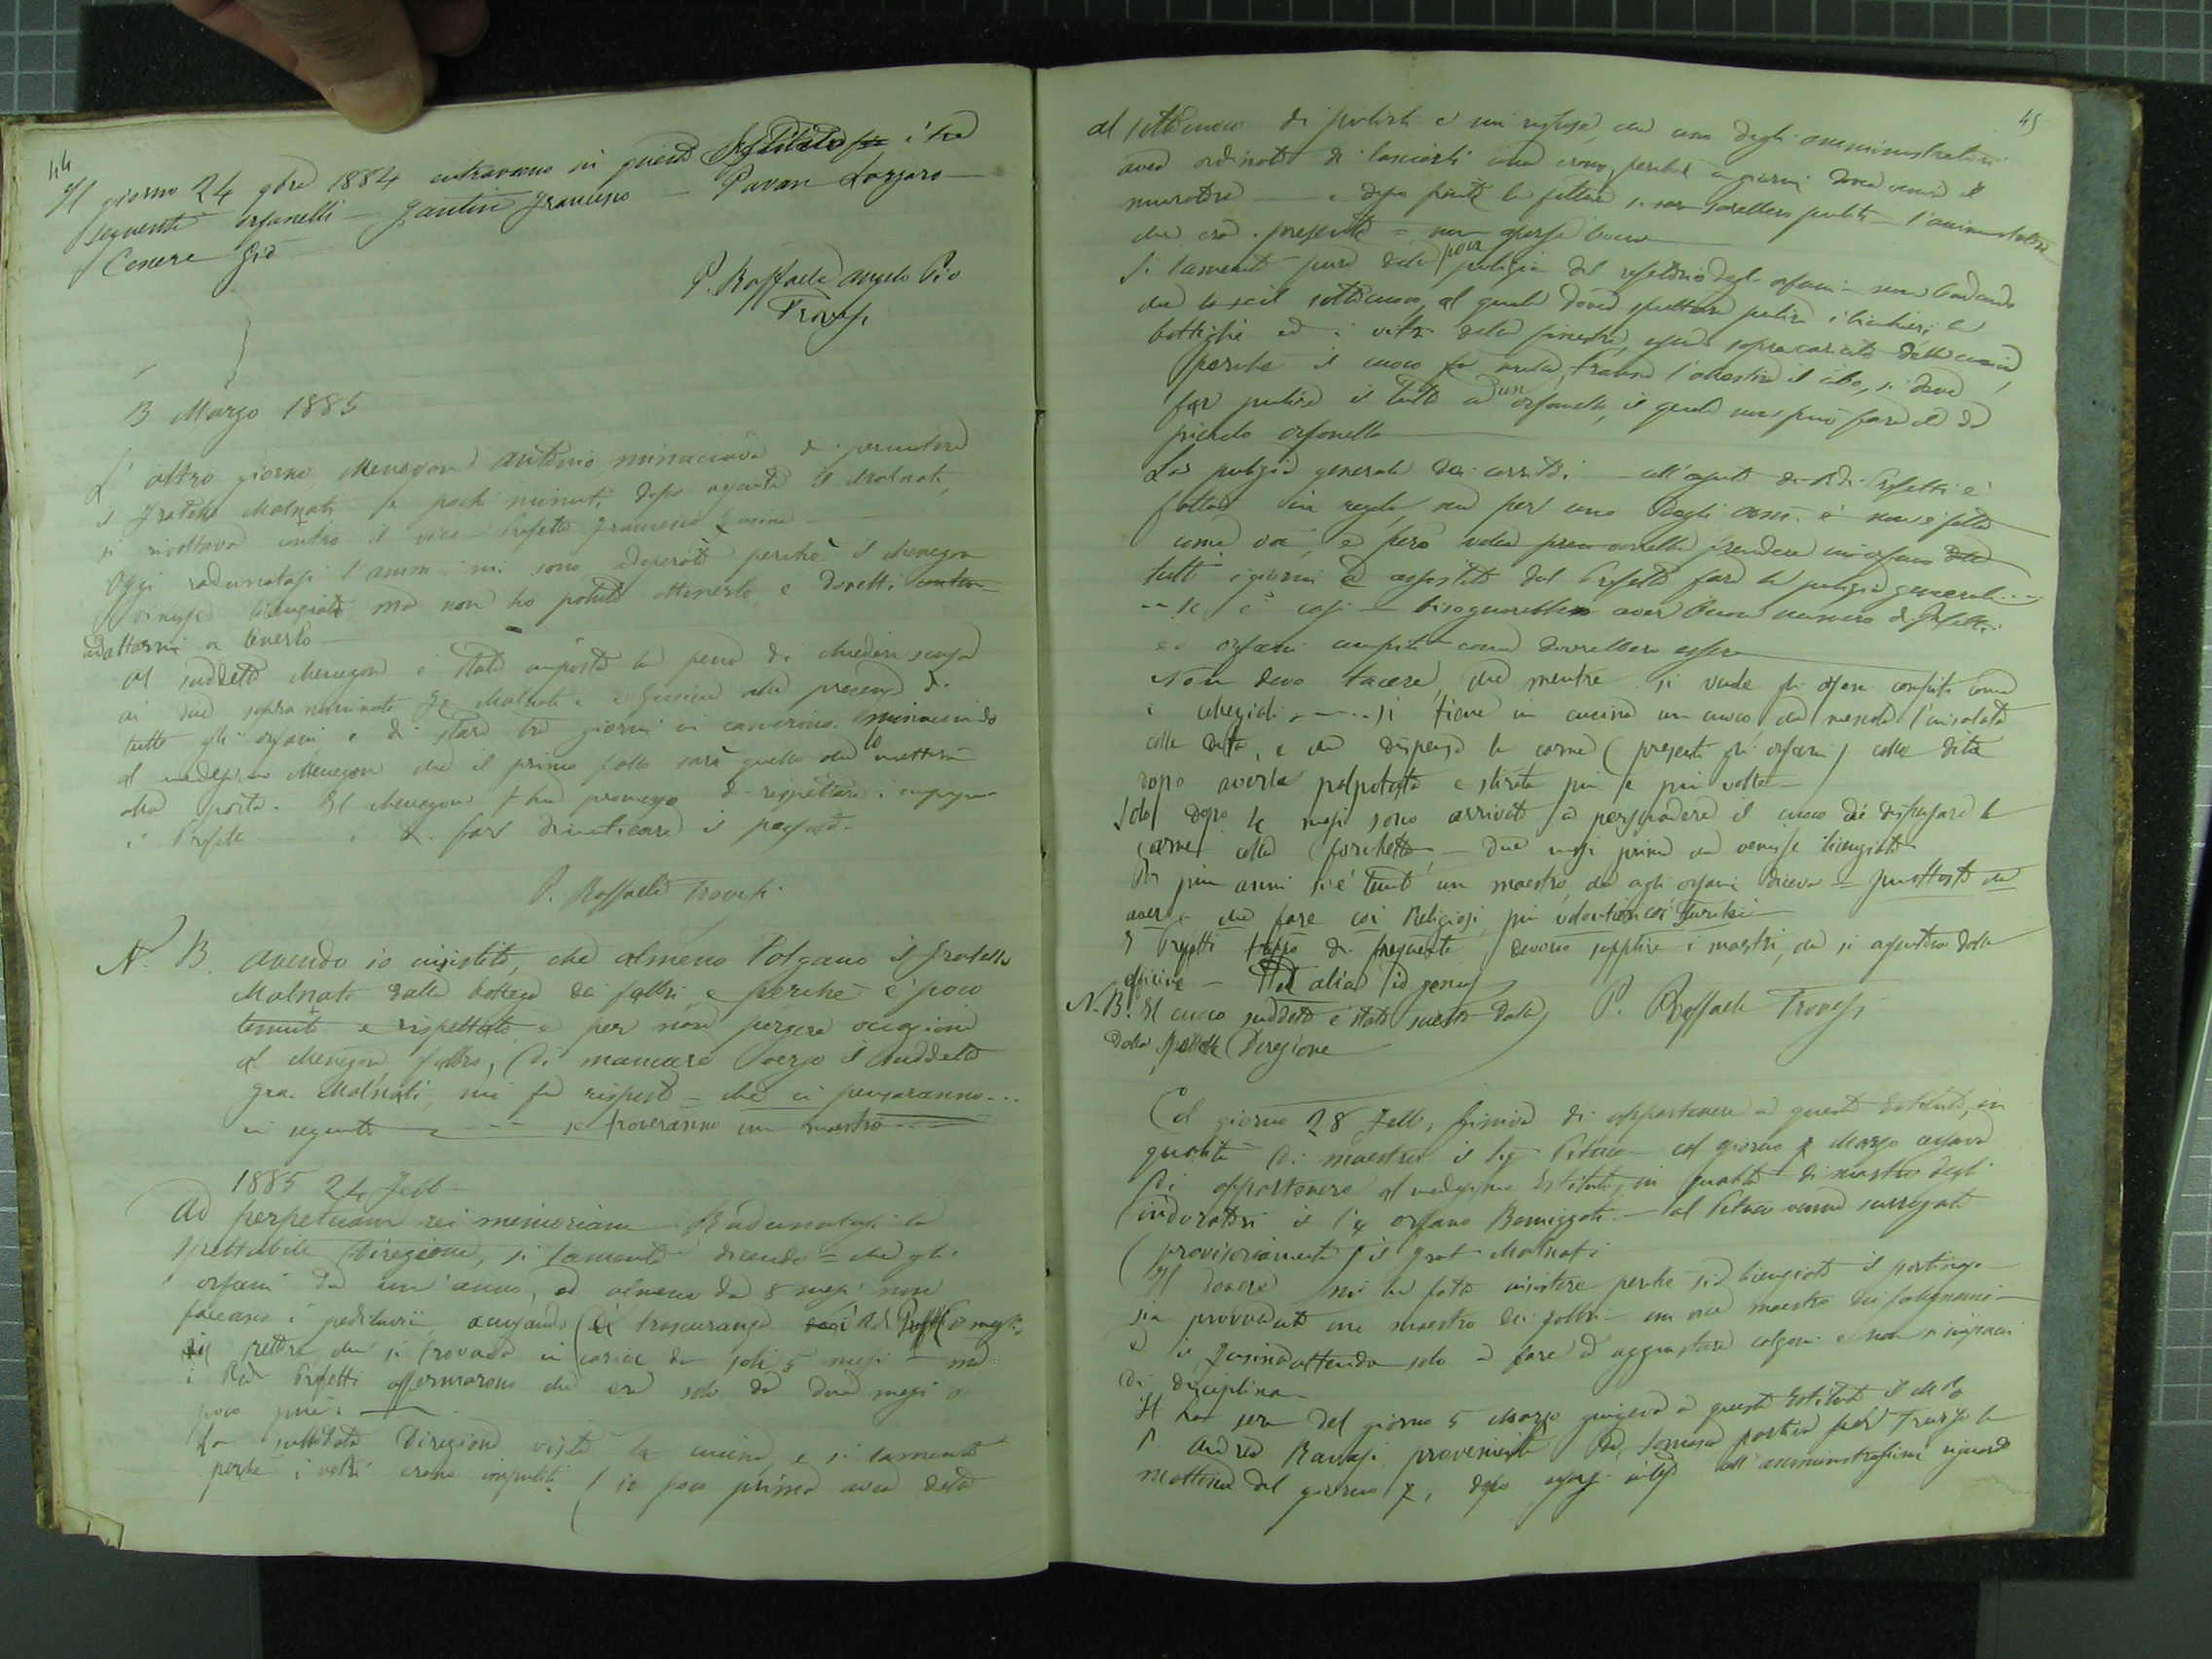 44
Il giorno 24 9bre 1884 entravano in questo Istituto i tre
seguenti orfanelli - Zantin Francesco - Pavan Lazzaro -
Cenere Gio
P. Raffaele Angelo Pio
Trovesi
3 Marzo 1885
L'altro giorno Menegon Antonio minacciava di percuotere
il fratello Malnati e pochi minuti dopo il Malnati,
si rivoltava contro il vice Prefetto Francesco Zusina -
Oggi radunatasi l'amm. mi sono adoperato perchè il Menegon
venisse licenziato, ma non ho potuto ottenerlo e dovetti
adattarmi a tenerlo -
Al suddetto Menegon è stata imposta la pena di chiedere scusa
ai due sopranominati Malnati e Zusina alla presenza di
tutti gli orfani, e di stare tre giorni in camerino minacciando
al medesimo Menegon che il primo fallo sarà quello che lo metterà
alla porta. Il Menegon ha promesso di rispettare
i Prefetti e di far dimenticare il passato.
P. Raffaele Trovesi
N. B. Avendo io insistito, che almeno tolgano il fratello
Malnati dalla bottega dei fabbri, e perchè è poco
temuto e rispettato, e per non porgere occasione
al Menegon, fabbro, di mancare verso il suddetto
Fra. Malnati, mi fu risposto = che ci penseranno...
in seguito - - - se troveranno un maestro -
1885 24 Febb
Ad perpetuam rei memoriam Radunatasi la
Spettabile Direzione, si lamentò dicendo = che gli
orfani da un'anno, od almeno da 8 mesi non
facevano i pediluvii, accusando di trascuranza
rettore che si trovava in carica da soli 5 mesi - ma
i Rdi Prefetti affermarono che era solo da due mesi o
poco più. -
La sullodata Direzione visitò la cucina, e si lamentò
perchè i vetri erano impuliti. (io poco prima avea detto
45
al sottocuoco di pulirli e mi rispose, che uno degli amministratori
avea ordinato di lasciarli come erano, perchè a giorni dovea venire il
muratore - e dopo finito la fattura si sarebbero puliti - l'amministratore
che era presente = non aperse bocca
Si lamentò pure della poca pulizia del refettorio degli orfani - non badando
che se il sottocuoco, al quale dovea spettare pulire i bicchieri le
bottiglie ed i vetri delle finestre, essendo sopracaricato della cucina,
perchè il cuoco fa nulla, tranne l'allestire il cibo, si deve
far pulire il tutto ad un orfanello, il quale non può fare che da
piccolo orfanello
La pulizia generale dei corridoi - coll'aiuto dei Rdi Prefetti è
fatta in regola, ma per uno degli amm. è non è fatta
come va, e però volea prendere un orfano
tutti i giorni e assistito dal Prefetto fare la pulizia generale...
- se è così - bisognerebbero aver buon numero di Prefetti
ed orfani compiti come dovrebbero essere
Non devo tacere, che mentre si vuole gli orfani compiti come
i collegiali - - .. si tiene in cucina un cuoco che mescola l'insalata
colle dita, e che dispensa la carne (presenti gli orfani) colle dita
dopo averla palpitata e stirata più e più volte -
Solo dopo 4 mesi sono arrivato a persuadere il cuoco di dispensare la
carne colla forchetta, - due mesi prima che venisse licenziato
Per più anni si è tenuto un maestro, che agli orfani diceva = piuttosto che
avere che fare coi Religiosi, più volontieri coi Turchi
I Prefetti troppo di frequente devono supplire i maestri, che si assentano dalle
officine - Et alia id genus
N. B. Il cuoco suddetto è stato scelto dalla P. Raffaele Trovesi
dalla Direzione
Col giorno 28 Febb, finiva di appartenere a questo Istituto, in
qualità di maestro il Sig Peluco - col giorno Marzo cessava
di appartenere al medesimo Istituto, in qualità di maestro degli
indoratori il l'ex orfano Bomizzoti - al Peluco venne surrogato
(provisoriamente) il Frat. Malnati
Il dovere mi ha fatto insistere perchè sia licenziato il portinajo -
sia provveduto un maestro dei fabbri - un vice maestro dei falegnami -
e il Zusina attenda solo a fare ad aggiustare calzoni e non s'impacci
di disciplina -
La sera del giorno 5 Marzo giungeva a questo Istituto il M. R.
P. Andrea Ravasi proveniente da Somasca partiva per la
mattina del giorno 7, dopo essersi inteso coll'amministrazione riguardo